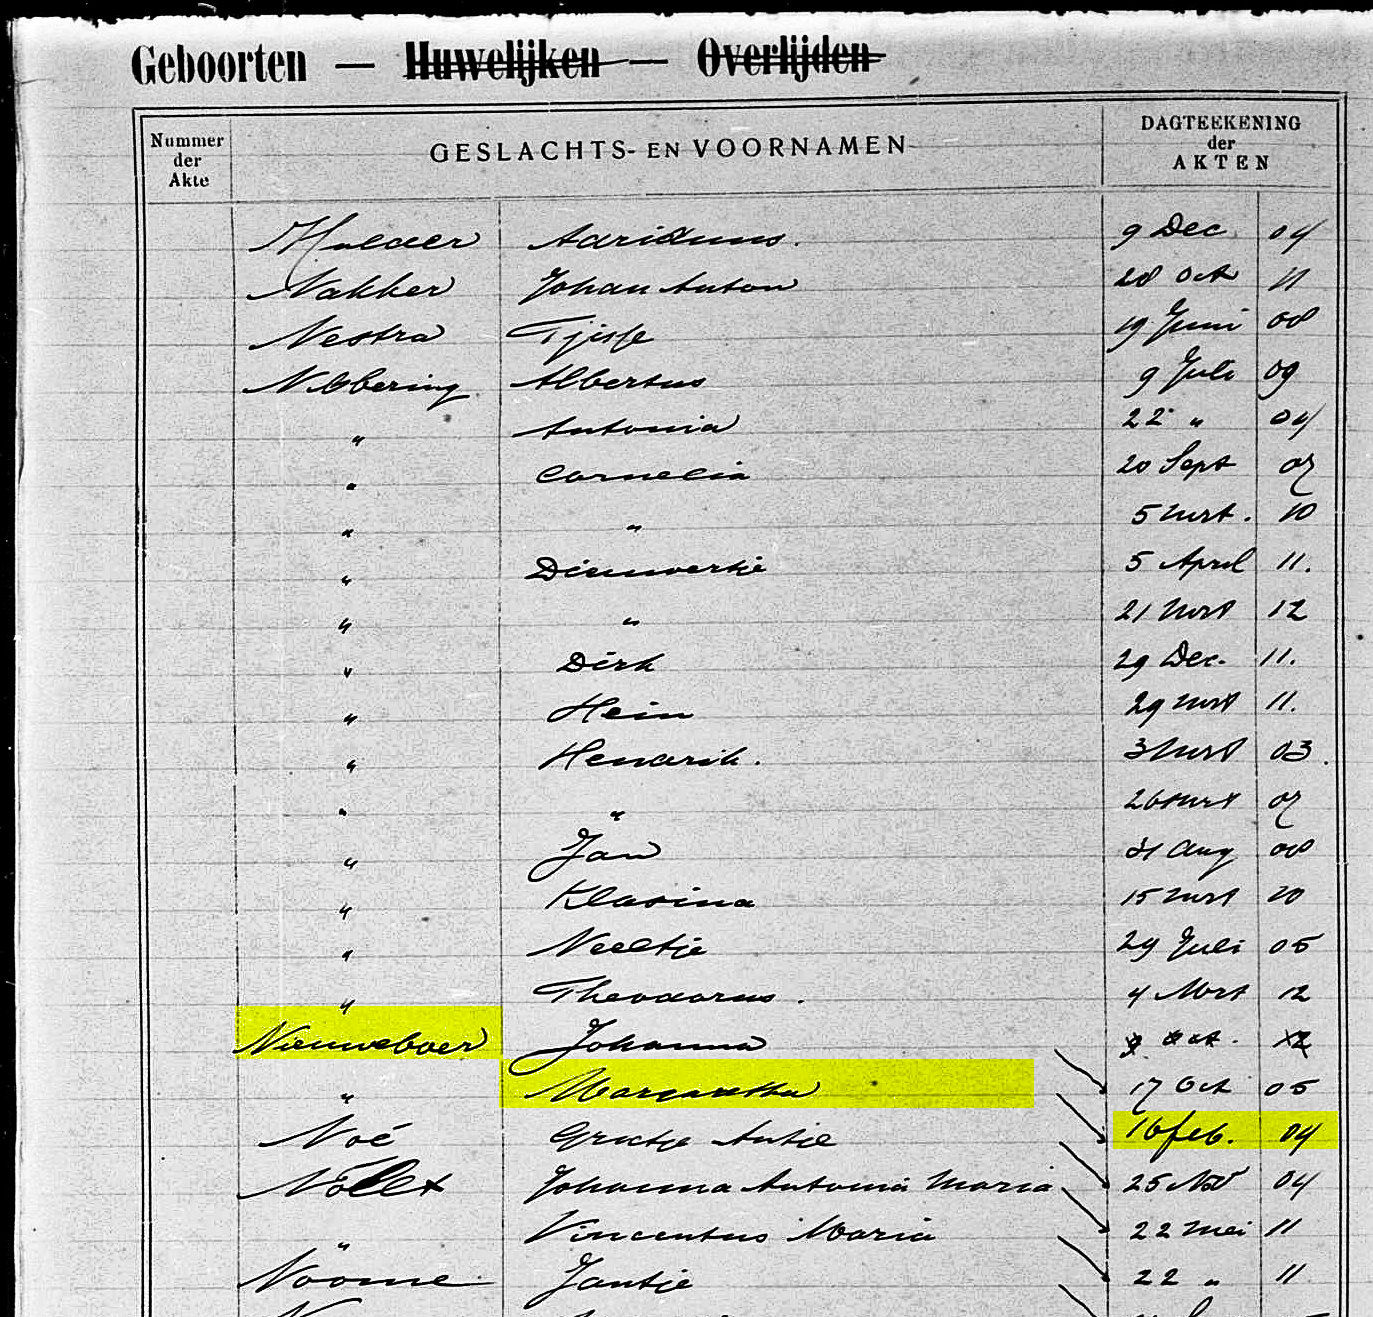 Geboorten — Huwelijken — Overlijden
Nummer der Akte
GESLACHTS- EN VOORNAMEN
DAGTEEKENING der AKTEN
Mulder Adrianus. 9 Dec. 04
Nakker Johan Anton 28 Oct 11
Nestra Tjisse 19 Juni 08
Nibbering Albertus 9 Juli 09
" Antonia 22 " 04
" Cornelia 20 Sept 07
" " 5 Mrt. 10
" Dieuwertje 5 April 11.
" " 21 Mrt 12
" Dirk 29 Dec. 11.
" Hein 29 Mrt 11.
" Hendrik. 3 Mrt 03.
" " 26 Mrt 07
" Jan 31 Aug 08
" Klasina 15 Mrt 10
" Neeltje 29 Juli 05
" Theodorus. 4 Mrt 12
Nieuweboer Johanna Oct. 12
" Margaretha 17 Oct 05
Noé Grietje Antje 16 feb. 04
Nollet Johanna Antonia Maria 25 Nov 04
" Vincentus Maria 22 Mei 11
Nöome Jantje 22 " 11